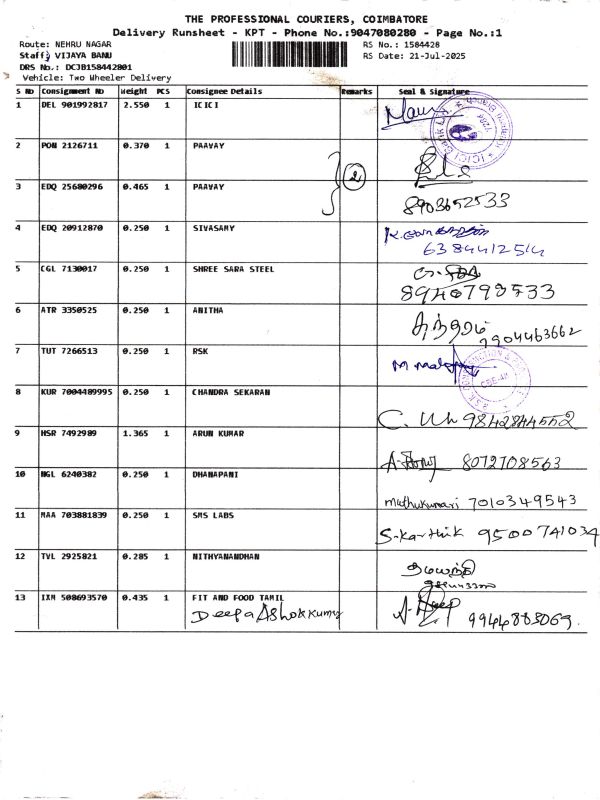 THE PROFESSIONAL COURIERS, COIMBATORE
Delivery Runsheet - KPT - Phone No.:9047080280 - Page No.:1
Route: NEHRU NAGAR RS No.: 1584428
Staff: VIJAYA BANU RS Date: 21-Jul-2025
DRS No.: DCJB158442801
Vehicle: Two Wheeler Delivery
S No Consignment No Weight PCS Consignee Details Remarks Seal & Signature
1 DEL 901992817 2.550 1 ICICI
2 PON 2126711 0.370 1 PAAVAY
2
3 EDQ 25680296 0.465 1 PAAVAY 8903652533
4 EDQ 20912870 0.250 1 SIVASAMY
6384412514
5 CGL 7130017 0.250 1 SHREE SARA STEEL
8940793533
6 ATR 3350525 0.250 1 ANITHA
7904463662
7 TUT 7266513 0.250 1 RSK
8 KUR 7004489995 0.250 1 CHANDRA SEKARAN
9842844552
9 HSR 7492989 1.365 1 ARUN KUMAR
8072708563
10 NGL 6240382 0.250 1 DHANAPANI
muthukumari 7010349543
11 MAA 703881839 0.250 1 SMS LABS
S-Karthik 9500741034
12 TVL 2925821 0.285 1 NITHYANANDHAN
13 IXM 508693570 0.435 1 FIT AND FOOD TAMIL
Deepa Ashokkumar 9944883069